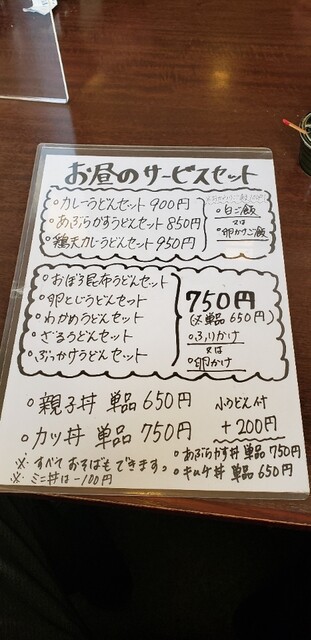 お昼のサービスセット
○カレーうどんセット 900円
○あぶらかすうどんセット 850円
○鶏天カレーうどんセット 950円
○白ご飯
又は
○卵かけご飯
○おぼろ昆布うどんセット
○卵とじうどんセット
○わかめうどんセット
○ざるうどんセット
○ぶっかけうどんセット
750円
(※単品650円)
○ふりかけ
又は
○卵かけ
○親子丼 単品 650円
○カツ丼 単品 750円
小うどん付
+200円
○あぶらかす丼 単品 750円
○キムチ丼 単品 650円
※すべておそばもできます。
※ミニ丼は-100円